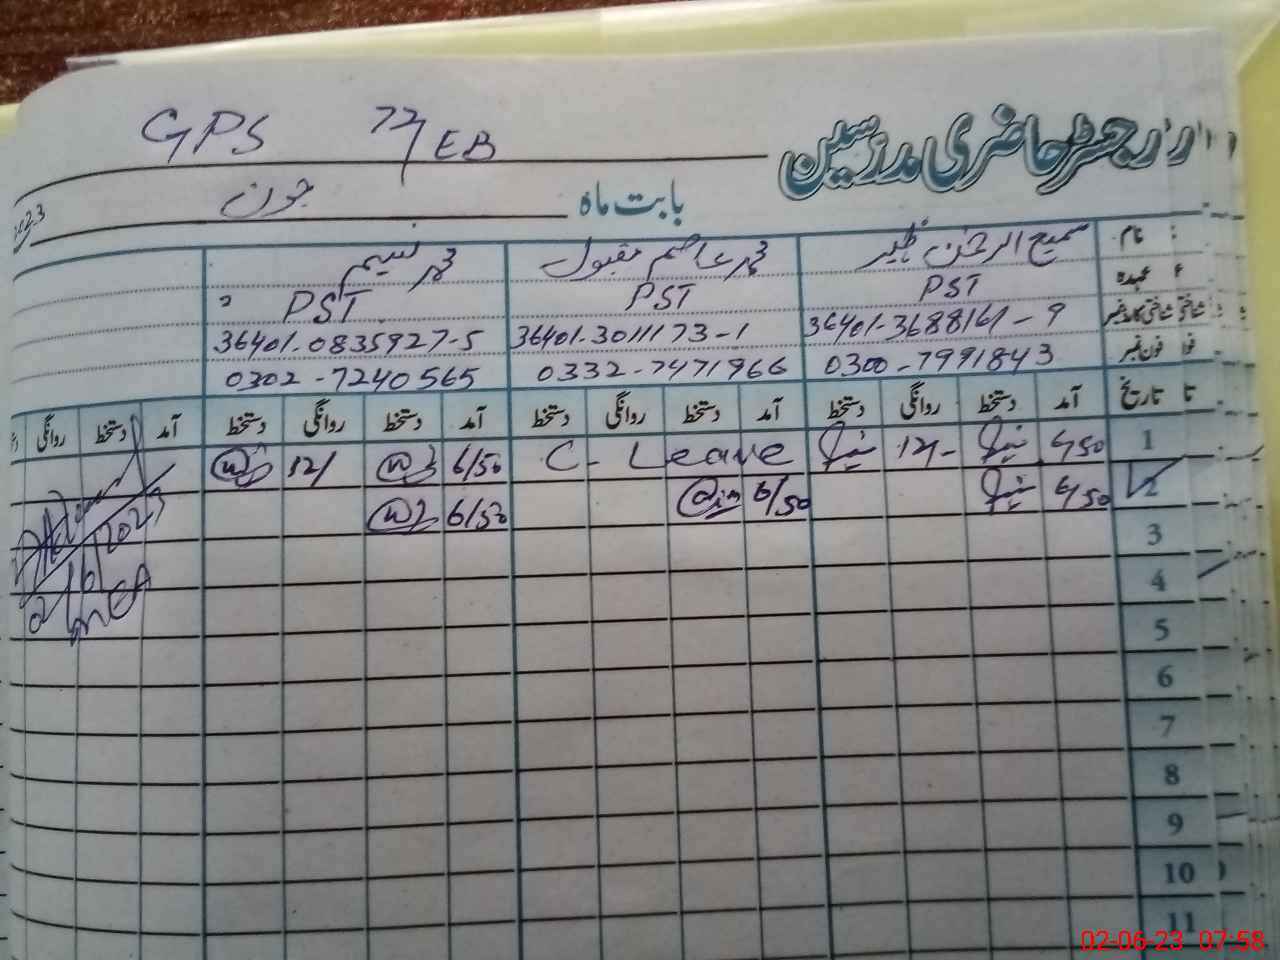 GPS 77/EB
رجسٹر حاضری مدرسین
بابت ماہ جون
2023
نام سمیع الرحمٰن ظہیر محمد عاصم مقبول محمد نسیم
عہدہ PST PST PST
شناختی کارڈ نمبر 36401-3688161-9 36401-3011173-1 36401-0835927-5
فون نمبر 0300-7991843 0332-7471966 0302-7240565
تاریخ آمد دستخط روانگی دستخط آمد دستخط روانگی دستخط آمد دستخط روانگی دستخط آمد دستخط روانگی
1 6/50 12/- C- Leave 6/50 12/
2 6/50 6/50 6/50
2/6/2023
3
4
5
6
7
8
9
10
11
02-06-23 07:58